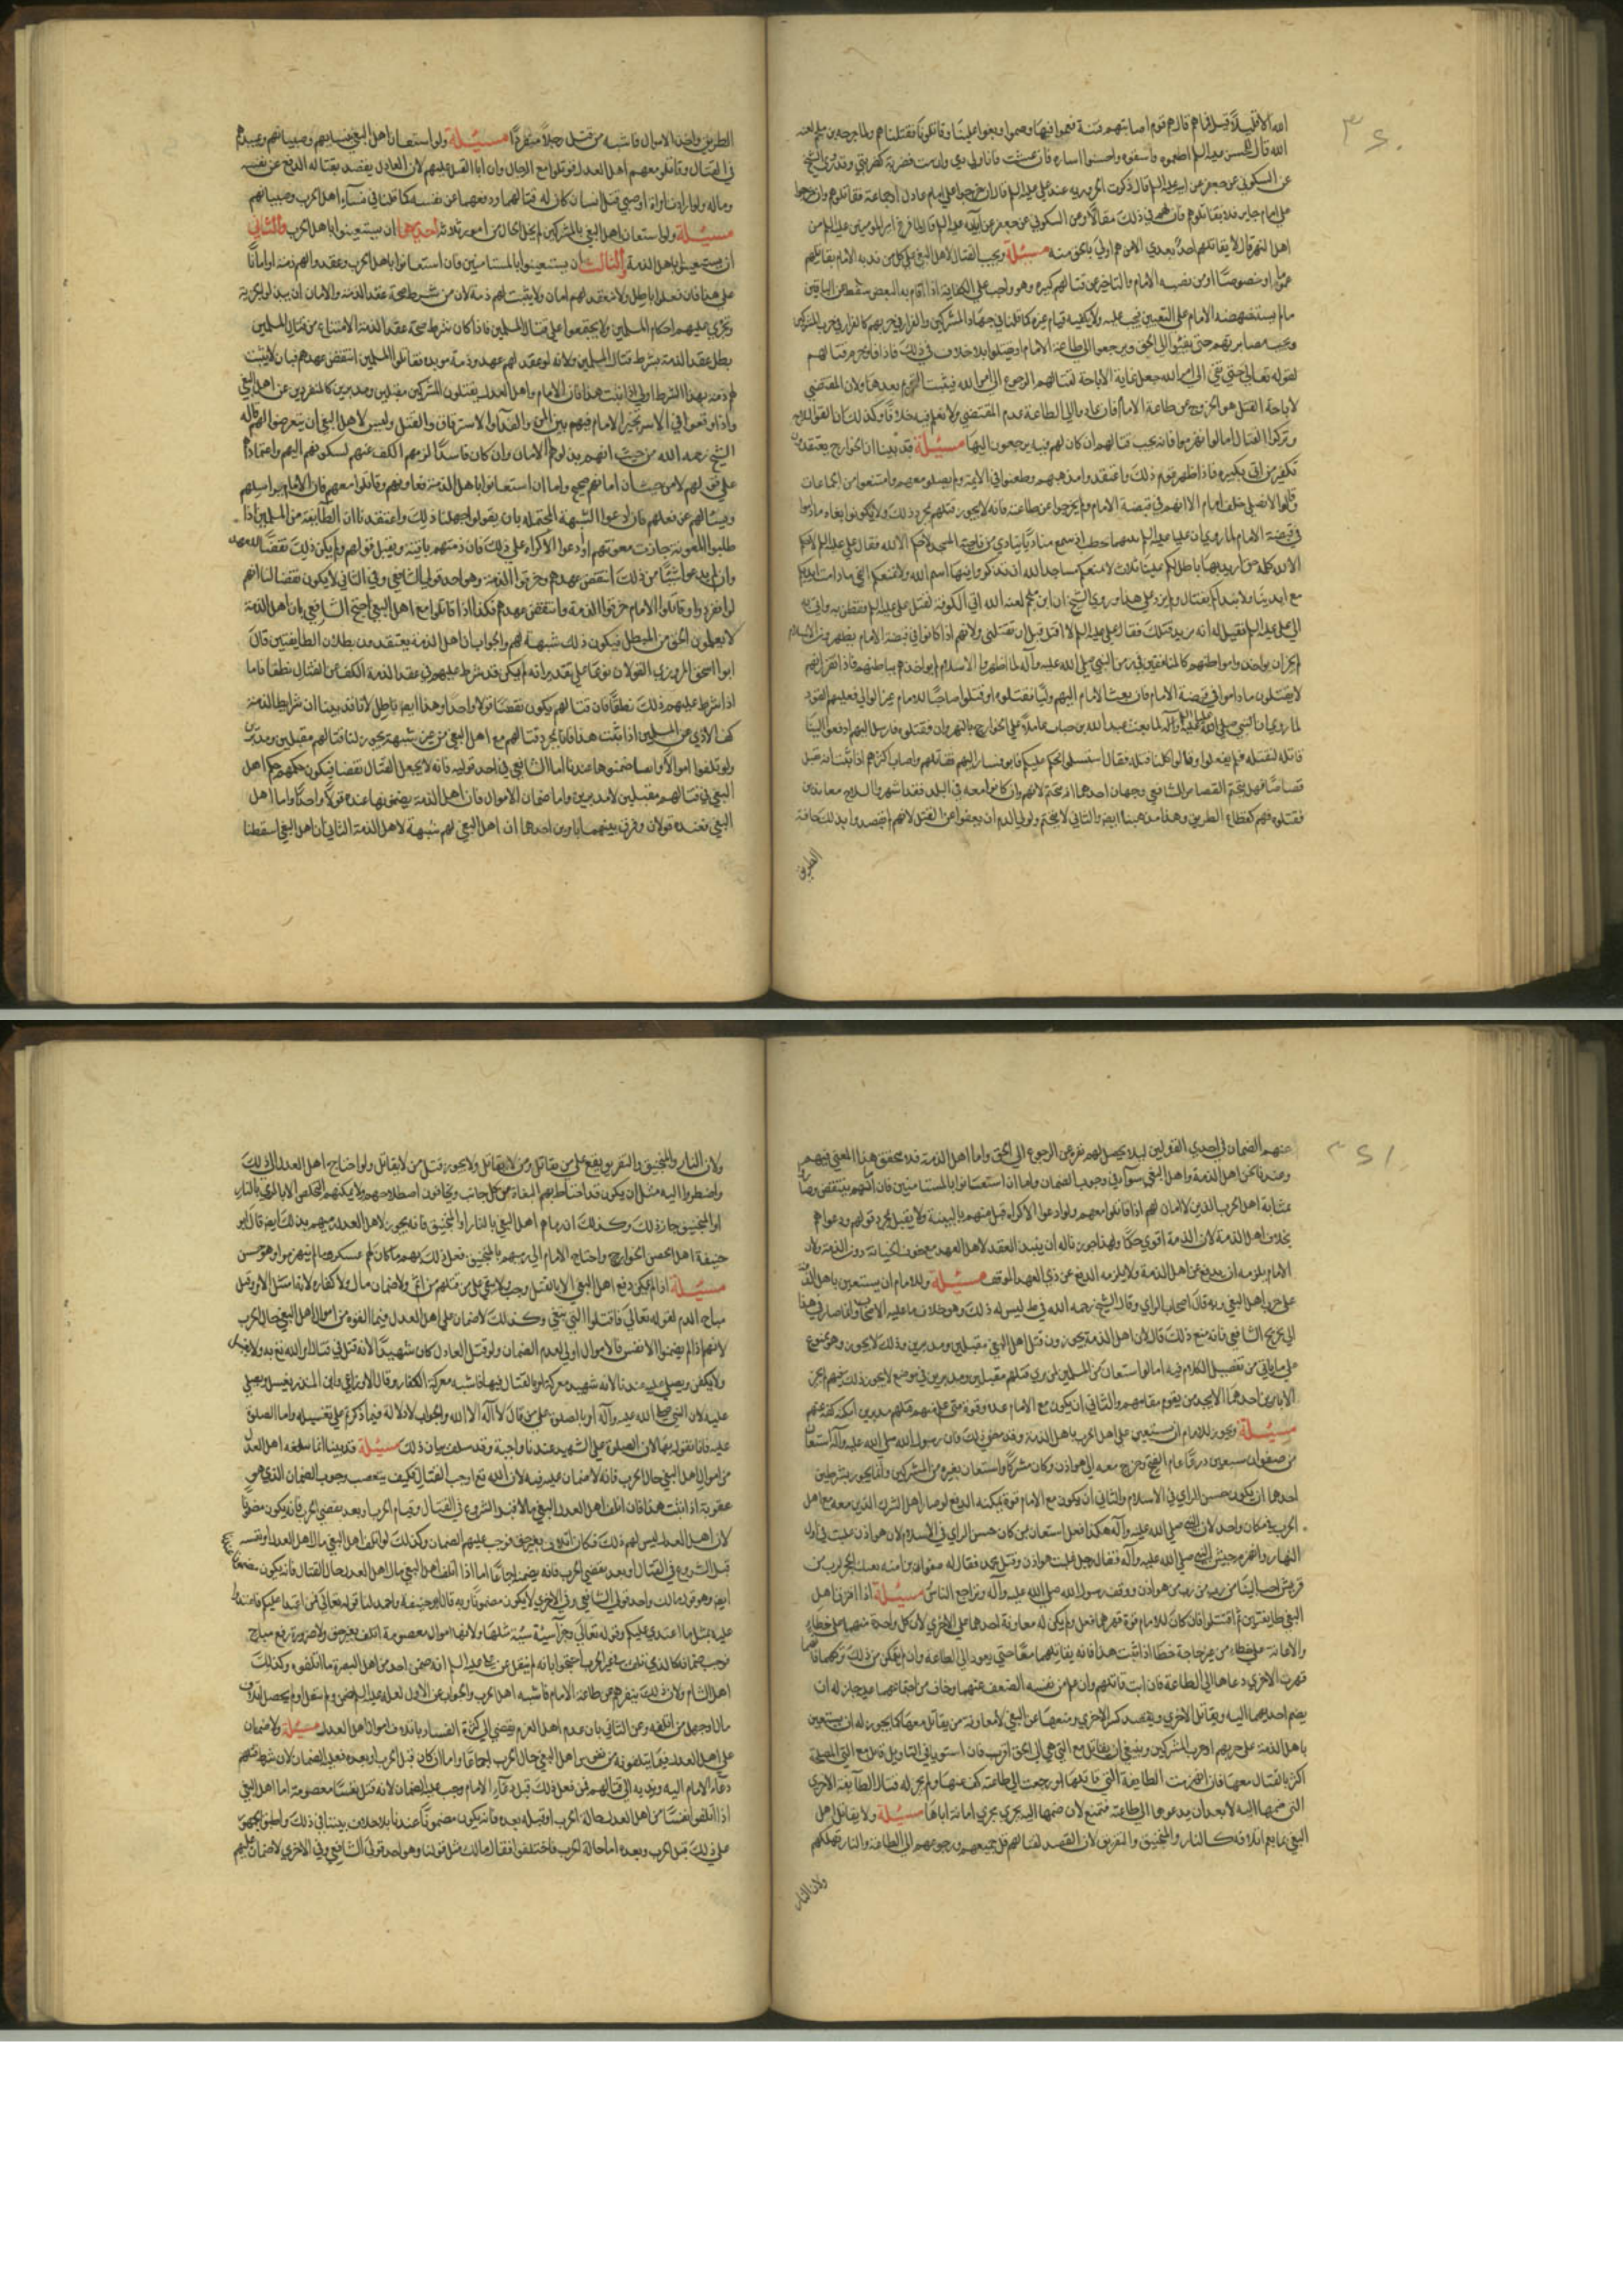 ٣٢٠
الله الا قليلا قيل فما هم قال هم قوم اصابتهم فتنة فعموا فيها وصموا وبغوا علينا وقاتلونا فقتلناهم ولما جرحه بن ملجم لعنه
الله قال للحسن عليه السلم اطعموه واسقوه واحسنوا اساره فان عشت فانا ولي دمي وان مت فضربة كضربتي وقد روي الشيخ
عن السكوني عن جعفر عن ابيه عليه السلم قال ذكرت الحرورية عند علي عليه السلم قال ان خرجوا علي امام عادل او جماعة فقاتلوهم وان خرجوا
علي امام جاير فلا تقاتلوهم فان لهم في ذلك مقالا وعن السكوني عن جعفر عن ابيه عليه السلم قال لما فرغ امير المؤمنين عليه السلم من
اهل النهر قال لا يقاتلهم احد بعدي الا من هم اولي بالحق منه مسئلة ويجب القتال لاهل البغي علي كل من ندبه الامام بقتالهم
عموما او خصوصا او من نصبه الامام والتاخير عن قتالهم كبيرة وهو واجب علي الكفاية اذا قام به البعض سقط عن الباقين
مالم يستنهضه الامام علي التعيين فيجب عليه ولا يكفيه قيام غيره كما قلنا في جهاد المشركين والفرار في حربهم كالفرار في حرب المشركين
ويجب مصابرتهم حتي يفيئوا الي الحق ويرجعوا الي طاعة الامام او يقتلوا بلا خلاف في ذلك فاذا فاؤا حرم قتالهم
لقوله تعالي حتي تفي الي امر الله جعل غاية الاباحة لقتالهم الرجوع الي امر الله فيثبت التحريم بعدها ولان المقتضي
لاباحة القتل هو الخروج عن طاعة الامام فان عاد وا الي الطاعة عدم المقتضي ولا نعلم فيه خلافا وكذلك ان القوا السلاح
وتركوا القتال اما لو انهزموا فانه يجب قتالهم ان كان لهم فئة يرجعون اليها مسئلة قد بينا ان الخوارج يعتقدون
تكفير من اتي بكبيرة فاذا ظهر قوم ذلك واعتقد وامذهبهم وطعنوا في الايمة ولم يصلوا معهم وامتنعوا من الجماعات
وقالوا لا نصلي خلف امام الا انهم في قبضة الامام ولم يخرجوا عن طاعته فانه لا يجوز قتلهم بمجرد ذلك ولا يكونوا بغاه ماداموا
في قبضة الامام لما روي ان عليا عليه السلم بينهما يخطب اذ سمع مناديا ينادي من ناحية المسجد لا حكم الا لله فقال علي عليه السلم لا حكم
الا لله كلمة حق اريد بها باطل لكم علينا ثلاث لا نمنعكم مساجد الله ان تذكروا فيها اسم الله ولا نمنعكم الفي ما دامت ايديكم
مع ايدينا ولا نبدأكم بقتال ولم يزد علي هذا وروي الشيخ ان ابن ملجم لعنه الله اتي الكوفة لقتل علي عليه السلم ففطن به واتي به
الي علي عليه السلم فقيل له انه يريد قتلك فقال علي عليه السلم لا اقتله قبل ان يقتلني ولانهم اذا كانوا في قبضة الامام يظهرون الاسلام
لم يجز ان يواخذوا بواطنهم كالمنافقين في زمن النبي صلي الله عليه وآله لما اظهروا الاسلام لم يواخذهم بباطنهم فاذا تقرر انهم
لا يقتلون ماداموا في قبضة الامام فان بعث الامام اليهم واليا فقتلوه او قتلوا صاحبا للامام غير الوالي فعليهم القود
لما روي ان النبي صلي الله عليه وآله لما بعث عبد الله بن خباب عاملا علي الخوارج بالنهروان فقتلوه فارسل اليهم ادفعوا الينا
قاتله لنقتله فلم يفعلوا وقالوا كلنا قتله فقال استسلموا الحكم عليكم فابوا فسار اليهم فقاتلهم واصاب اكثرهم اذا ثبت انه قتل
قصاصا فهل يتحتم القصاص للشافعي وجهان احدهما التحتم لانهم وان كانوا معه في البلد فقد اشهروا السلاح معاندين
فقتلوه فهم كقطاع الطريق وهذا مذهبنا ايضا والثاني لا يتحتم ولولي الدم ان يعفوا عن القتل لانهم لم يقصدوا بذلك اخافة
الطريق
الطريق واخذ الاموال فاشبه من قتل رجلا منفردا مسئلة ولو استعان اهل البغي بنسائهم وصبيانهم وعبيدهم
في القتال وقاتلوا معهم اهل العدل قوتلوا مع الرجال وان ابا القتل عليهم لان العادل يقصد بقتاله الدفع عن نفسه
وماله ولو ارادت امراة او صبي قتل انسان كان له قتالهما ودفعهما عن نفسه كما قلنا في نسآء اهل الحرب وصبيانهم
مسئلة ولو استعان اهل البغي بالمشركين لم يخل الحال من امور ثلثة احدها ان يستعينوا باهل الحرب والثاني
ان يستعينوا باهل الذمة والثالث ان يستعينوا بالمستامنين فان استعانوا باهل الحرب وعقدوا لهم ذمة او امانا
علي هذا فان فعلوا باطل ولا ينعقد لهم امان ولا يثبت لهم ذمة لان من شرط صحة عقد الذمة والامان ان يبذلوا الجزية
وتجري عليهم احكام المسلمين ولا يجتمعوا علي قتال المسلمين فاذا كان شرط صحة عقد الذمة الامتناع من قتال المسلمين
بطل عقد الذمة بشرط قتال المسلمين ولانه لو عقد لهم عهد وذمة موبده فقاتلوا المسلمين انتقض عهدهم فبان لا يثبت
لهم ذمة بهذا الشرط اولي اذا ثبت هذا فان الامام واهل العدل يقتلون المشركين مقبلين ومدبرين كالمنفردين عن اهل البغي
واذا وقعوا في الاسر تخير الامام فيهم بين المن والفدآء والاسترقاق والقتل وليس لاهل البغي ان يتعرضوا لهم قاله
الشيخ رحمه الله من حيث انهم بذلوا لهم الامان وان كان فاسدا لزمهم الكف عنهم لسكونهم اليهم واعتمادهم
علي قولهم لا من حيث ان امانهم صحيح واما ان استعانوا باهل الذمة فعاونوهم وقاتلوا معهم فان الامام يراسلهم
ويسئالهم عن فعلهم فان ادعوا الشبهة المحتملة بان يقولوا جهلنا ذلك واعتقدنا ان الطايفة من المسلمين اذا
طلبوا المعونة جازت معونتهم او ادعوا الاكراه علي ذلك فان ذمتهم باقية ويقبل قولهم ولم يكن ذلك نقضا للعهد
وان لم يدعوا شيئا من ذلك انتقض عهدهم وخرقوا الذمة وهو احد قولي الشافعي وفي الثاني لا يكون نقضا لنا انهم
لو انفردوا وقاتلوا الامام خرقوا الذمة وانتقض عهدهم فكذا اذا قاتلوا مع اهل البغي احتج الشافعي بان اهل الذمة
لا يعلمون المحق من المبطل فيكون ذلك شبهة لهم والجواب ان اهل الذمة يعتقدون بطلان الطايفتين قال
ابو اسحق المروزي القولان نوعا علي تقدير انه لم يكن قد شرط عليهم في عقد الذمة الكف عن القتال نطقا فاما
اذا شرط عليهم ذلك نطقا فان قتالهم يكون نقضا قولا واحدا وهذا ايضا باطل لانا قد بينا ان شرايط الذمة
كف الاذي عن المسلمين اذا ثبت هذا فانا بمجرد قتالهم مع اهل البغي من غير شبهة يجوز لنا قتالهم مقبلين ومدبرين
ولو اتلفوا اموالا وانفسا ضمنوها عندنا اما الشافعي في احد قوليه فانه لا يجعل القتال نقضا فيكون حكمهم حكم اهل
البغي في قتالهم مقبلين لا مدبرين واما ضمان الاموال فان اهل الذمة يضمنونها عنده قولا واحدا واما اهل
البغي فعنده قولان وفرق بينهما بامرين احدهما ان اهل البغي لهم شبهة لاهل الذمة الثاني ان اهل البغي اسقطنا
٣٢١
عنهم الضمان في احدي القولين ليلا يحصل لهم نفر عن الرجوع الي الحق واما اهل الذمة فلا يتحقق هذا المعني فيهم
وعندنا نحن اهل الذمة واهل البغي سوآء في وجوب الضمان واما ان استعانوا بالمستامنين فان امانهم ينتقض وصاروا
بمثابة اهل الحرب الذين لا امان لهم اذا قاتلوا معهم ولو ادعوا الاكراه قبل منهم بالبينة ولا يقبل بمجرد قولهم ودعواهم
بخلاف اهل الذمة لان الذمة اقوي حكما ولهذا جوزنا له ان ينبذ العقد لاهل العهد مع خوف الخيانة دون الذمة ولان
الامام يلزمه ان يدفع عن اهل الذمة ولا يلزمه الدفع عن ذي العهد الموقت مسئلة وللامام ان يستعين باهل الذمة
علي حرب اهل البغي وبه قال اصحاب الراي وقال الشيخ رحمه الله في ط ليس له ذلك وهو خلاف ما عليه الاصحاب وانما صار في هذا
الي تخريج الشافعي فانه منع ذلك قال لان اهل الذمة يجوزون قتل اهل البغي مقبلين ومدبرين وذلك لا يجوز وهو ممنوع
علي ما ياتي من تفصيل الكلام فيه اما لو استعان من المسلمين لمن يري قتلهم مقبلين ومدبرين في موضع لا يجوز ذلك فيهم لم يجز
الا بامرين احدهما الا يجد من يقوم مقامهم والثاني ان يكون مع الامام عدة وقوة متي علم منهم قتلهم مدبرين امكنه كفهم عنهم
مسئلة ويجوز للامام ان يستعين علي اهل الحرب باهل الذمة وقد مضي ذلك فان رسول الله صلي الله عليه وآله استعان
من صفوان سبعين درعا عام الفتح وخرج معه الي هوازن وكان مشركا واستعان بغيره من المشركين وانما يجوز بشرطين
احدهما ان يكون حسن الراي في الاسلام والثاني ان يكون مع الامام قوة يمكنه الدفع لو صار اهل الشرك الذين معه مع اهل
الحرب في مكان واحد لان النبي صلي الله عليه وآله هكذا فعل استعان بمن كان حسن الراي في الاسلام لان هوازن غلبت في اول
النهار وانهزم جيش النبي صلي الله عليه وآله فقال رجل غلبت هوازن وقتل محمد فقال له صفوان بن اميه بفيك الحجر لرب من
قريش احب الينا من رب من هوازن ووقف رسول الله صلي الله عليه وآله وتراجع الناس مسئلة اذا افترق اهل
البغي طايفتين ثم اقتتلوا فان كان للامام قوة قهرهما فعل ولم يكن له معاونة احدهما علي الاخري لان كل واحدة منهما علي خطاء
والاعانة علي خطاء من غير حاجة خطا اذا ثبت هذا فانه يقاتلهما معا حتي يعود الي الطاعة وان لم يتمكن من ذلك تركهما فايهما
قهرت الاخري دعاها الي الطاعة فان ابت قاتلهم وان علم من نفسه الضعف عنهما وخاف من اجتماعهما عليه جاز له ان
يضم احديهما اليه ويقاتل الاخري ويقصد كسر الاخري ومنعها عن البغي لا معاونة من يقاتل معها كما يجوز له ان يستعين
باهل الذمة علي حربهم او حرب المشركين وينبغي ان يقاتل مع التي هي الي الحق اقرب فان استويا في التاويل قاتل مع التي المصلحة
اكثر بالقتال معها فان انهزمت الطايفة التي قاتلها او رجعت الي طاعته كف عنها ولم يجز له قتال الطآيفة الاخري
التي ضمها اليه الا بعد ان يدعوها الي طاعته فتمتنع لان ضمها اليه يجري مجري امانه اياها مسئلة ولا يقاتل اهل
البغي بما يعم اتلافه كالنار والمنجنيق والتغريق لان القصد بقتالهم فل جمعهم ورجوعهم الي الطاعة والنار تهلكهم
ولان النار
ولان النار والمنجنيق والتغريق يقع علي من يقاتل ومن لا يقاتل ولا يجوز قتل من لا يقاتل ولو احتاج اهل العدل الي ذلك
واضطروا اليه مثل ان يكون قد احتاط بهم البغاة من كل جانب وخافوا اصطلامهم ولا يمكنهم التخلص الا بالرمي بالنار
او المنجنيق جاز ذلك وكذلك ان رماهم اهل البغي بالنار او المنجنيق فانه يجوز لاهل العدل رميهم بذلك ايضا قال ابو
حنيفة اذا تحصن الخوارج واحتاج الامام الي رميهم بالمنجنيق فعل ذلك بهم ما كان لهم عسكر وما لم ينهزموا وهو حسن
مسئلة اذا لم يمكن دفع اهل البغي الا بالقتل وجب ولا يبقي علي من قتلهم من اثم ولا ضمان مال ولا كفارة لانه امتثل الامر وقتل
مباح الدم لقوله تعالي فقاتلوا التي تبغي وكذلك لا ضمان علي اهل العدل فيما اتلفوه من اموال اهل البغي حال الحرب
لانهم اذا لم يضمنوا الانفس فالاموال اولي لعدم الضمان ولو قتل العادل كان شهيدا لانه قتل في قتال امر الله تع به ولا يغسل
ولا يكفن ويصلي عليه عندنا لانه شهيد معركة امر بالقتال فيها فاشبه معركة الكفار وقال الاوزاعي وابن المنذر يغسل ويصلي
عليه لان النبي صلي الله عليه وآله امر بالصلوة علي من قال لا آله الا الله والجواب لا دلالة فيما ذكره علي تغسيله واما الصلوة
عليه فانا نقول بها لان الصلوة علي الشهيد عندنا واجبة وقد سلف بيان ذلك مسئلة قد بينا انما اتلفه اهل العدل
من اموال اهل البغي حال الحرب فانه لا ضمان عليه فيه لان الله تع اوجب القتال فكيف يتعقب وجوب الضمان الذي هو
عقوبة اذا ثبت هذا فان اتلف اهل العدل للبغي مالا قبل الشروع في القتال وقيام الحرب او بعد تقضي الحرب فانه يكون مضمونا
لان اهل العدل ليس لهم ذلك فكان اتلافه بغير حق فوجب عليهم الضمان وكذلك لو اتلف اهل البغي مال اهل العدل او نفسه
قبل الشروع في القتال او بعد تقضي الحرب فانه يضمنه اجماعا اما اذا اتلف اهل البغي مال اهل العدل حال القتال فانه يكون مضمونا
ايضا وهو قول مالك واحد قولي الشافعي وفي الاخري لا يكون مضمونا وبه قال ابو حنيفة واحمد لنا قوله تعالي فمن اعتدا عليكم فاعتدوا
عليه بمثل ما اعتدي عليكم وقوله تعالي وجزآء سيئة سيئة مثلها ولانها اموال معصومة اتلفت بغير حق ولا ضرورة دفع مباح
فوجب ضمانه كالذي تلف في غير الحرب احتجوا بانه لم ينقل عن علي عليه السلم انه ضمن احد من اهل البصرة ما اتلفوه وكذلك
اهل الشام ولان ذلك ينفرهم عن طاعة الامام فاشبه اهل الحرب والجواب عن الاول لعله عليه السلم ضمن ولم ينقل او لم يحصل اتلاف
مال او جهل من اتلفه وعن الثاني بان عدم اهل الغرم يفضي الي كثرة الفساد باتلاف اموال اهل العدل مسئلة ولا ضمان
علي اهل العدل فيما يتلفونه من نفس اهل البغي حال الحرب اجماعا واما ان كان قبل الحرب او بعده فعليه الضمان لان شرط قتلهم
دعآء الامام اليه وندبه الي قتالهم فمن فعل ذلك قبل دعآء الامام وجب عليه الضمان لانه قتل نفسا معصومة اما اهل البغي
اذا اتلفوا نفسا من اهل العدل حالة الحرب او قبله او بعده فانه يكون مضمونا عندنا بلا خلاف بيننا في ذلك واطبق الجمهور
علي ذلك قبل الحرب وبعده اما حالة الحرب فاختلفوا فقال مالك مثل قولنا وهو احد قولي الشافعي وفي الاخري لا ضمان عليهم